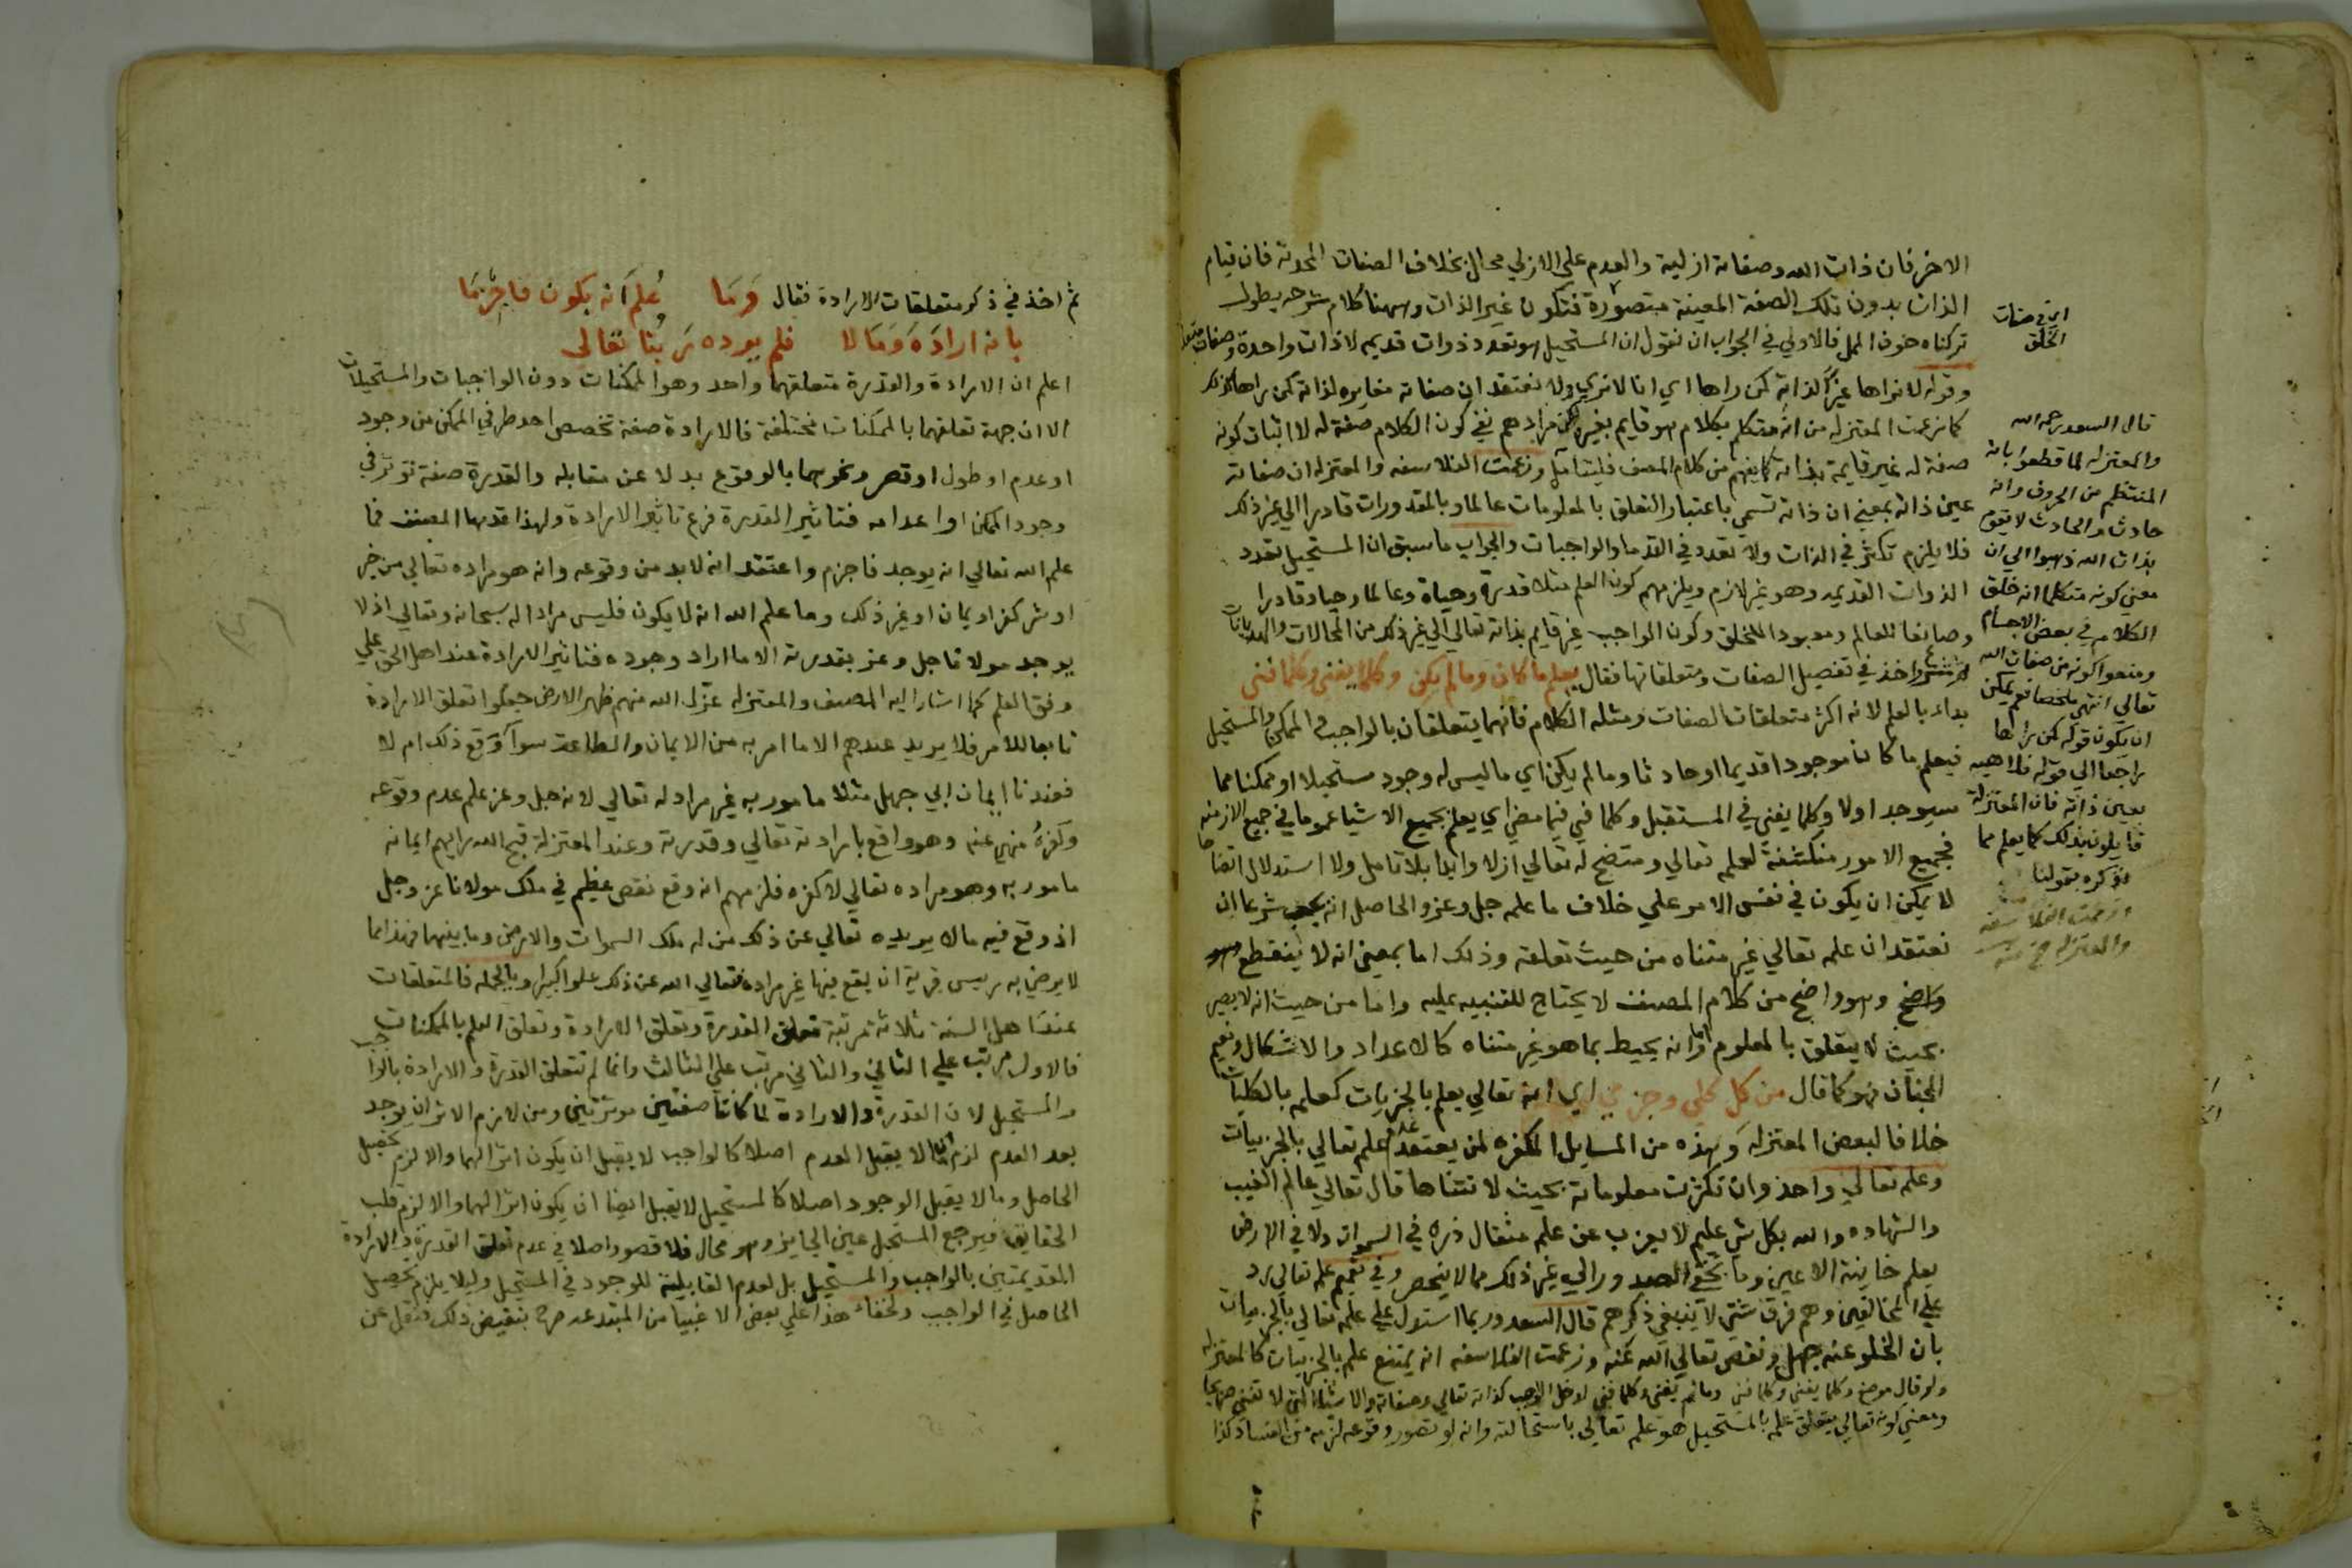 الاخر فان ذات الله وصفاته ازلية والعدم على الازلي محال بخلاف الصفات المحدثة فان قيام
الذات بدون تلك الصفة المعينة متصورة فتكون غير الذات وههنا كلام شرحه يطول
تركناه خوف الملل فالاولى في الجواب ان نقول ان المستحيل هو تعدد ذوات قديمه لا ذات واحدة وصفات
وقوله لا نراها غير الذات كمن راها اي انا لا نري ولا نعتقد ان صفاته مغايره لذاته كمن يراها كذلك
كما زعمت المعتزله من انه متكلم بكلام هو قايم بغيره لكن مرادهم نفي كون الكلام صفة له لا اثبات كونه
صفة له غير قايمة بذاته كما يفهم من كلام المصنف فليتامل وزعمت الفلاسفه والمعتزله ان صفاته
عين ذاته بمعني ان ذاته تسمي باعتبار التعلق بالمعلومات عالما وبالمقدورات قادرا الي غير ذلك
فلا يلزم تكثر في الذات ولا تعدد في القدما والواجبات والجواب ما سبق ان المستحيل تعدد
الذوات القديمه وهو غير لازم ويلزمهم كون العلم مثلا قدرة وحياة وعالما وحيا وقادرا
وصانعا للعالم ومعبودا للخلق وكون الواجب غير قايم بذاته تعالي الي غير ذلك من المحالات
واخذ في تفصيل الصفات ومتعلقاتها فقال يعلم ما كان وما لم يكن وكلما يفنى وكلما فني
بداء بالعلم لانه اكثر متعلقات الصفات ومثله الكلام فانهما يتعلقان بالواجب والممكن والمستحيل
فيعلم ما كان موجودا قديما او حادثا وما لم يكن اي ما ليس له وجود مستحيلا او ممكنا مما
سيوجد اولا وكلما يفنى في المستقبل وكلما فني فيما مضى اي يعلم بجميع الاشيا عموما في جميع الازمنه
فجميع الامور منكشفة لعلمه تعالي ومتضح له تعالي ازلا وابدا بلا تامل ولا استدلال
لا يمكن ان يكون في نفس الامر علي خلاف ما علمه جل وعز والحاصل انه يجب شرعا ان
نعتقد ان علمه تعالي غير متناه من حيث تعلقه وذلك اما بمعني انه لا ينقطع وهو
واضح وهو واضح من كلام المصنف لا يحتاج للتنبيه عليه واما من حيث انه لا يصير
بحيث لا يتعلق بالمعلوم وانه يحيط بما هو غير متناه كالاعداد والاشكال ونعيم
الجنان فهو كما قال من كل كلي وجزئي اي انه تعالي يعلم بالجزيات كعلمه بالكليات
خلافا لبعض المعتزله وهذه من المسايل المكفره لمن يعتقد علمه تعالي بالجزييات
وعلمه تعالي واحد وان تكثرت معلوماته بحيث لا تتناها قال تعالي عالم الغيب
والشهاده والله بكل شي عليم لا يعزب عن علمه مثقال ذره في السموات ولا في الارض
يعلم خاينة الاعين وما تخفي الصدور الي غير ذلك مما لا ينحصر وفي تعميم علمه تعالي رد
علي المخالفين وهم فرق شتي لا ينبغي ذكرهم قال السعد وربما استدل علي علمه تعالي بالجزييات
بان الخلو عنه جهل ونقص تعالي الله عنه وزعمت الفلاسفه انه يمتنع علمه بالجزييات كالمعتزله
ولو قال موضع وكلما يفنى وكلما فني وما لم يفنى وكلما فني لدخل الواجب كذاته تعالي وصفاته والاشيا التي لا تفنى
ومعني كونه تعالي يتعلق علمه بالمستحيل هو علمه تعالي باستحالته وانه لو تصور وقوعه لزمه من الفساد كذا
اي في صفات
الخلق
قال السعد رحمه الله
والمعتزله لما قطعوا بانه
المنتظم من الحروف وانه
حادث والحادث لا يقوم
بذات الله ذهبوا الي ان
معني كونه متكلما انه خلق
الكلام في بعض الاجسام
ومنعوا كونه من صفات الله
تعالي انتهي ملخصا نعم يمكن
ان يكون قوله كمن يراها
راجعا الي قوله فلا هيه
بعين ذاته فان المعتزلة
قايلون بذلك كما يعلم مما
نذكره بقولنا
وزعمت الفلاسفه
والمعتزله
ثم اخذ في ذكر متعلقات الارادة فقال وما علم انه يكون فاجزما
بانه اراده وما لا فلم يرده ربنا تعالى
اعلم ان الارادة والقدرة متعلقهما واحد وهو الممكنات دون الواجبات والمستحيلات
الا ان جهة تعلقهما بالممكنات مختلفة فالارادة صفة تخصص احد طرفي الممكن من وجود
او عدم او طول او قصر ونحوهما بالوقوع بدلا عن مقابله والقدرة صفة توثر في
وجود الممكن او اعدامه فتاثير القدرة فرع تاثير الارادة ولهذا قدمها المصنف فما
علم الله تعالي انه يوجد فاجزم واعتقد انه لا بد من وقوعه وانه هو مراده تعالي من خير
او شر كفر او ايمان او غير ذلك وما علم الله انه لا يكون فليس مرادا له سبحانه وتعالي اذ لا
يوجد مولانا جل وعز بقدرته الا ما اراد وجوده فتاثير الارادة عند اهل الحق علي
وفق العلم كما اشار اليه المصنف والمعتزله عزل الله منهم ظهر الارض جعلوا تعلق الارادة
تابعا للامر فلا يريد عندهم الا ما امر به من الايمان والطاعة سوآ وقع ذلك ام لا
فعندنا ايمان ابي جهل مثلا مامور به غير مراد له تعالي لانه جل وعز علم عدم وقوعه
وكفره منهي عنه وهو واقع بارادته تعالي وقدرته وعند المعتزلة قبح الله رايهم ايمانه
مامور به وهو مراده تعالي لا كفره فلزمهم انه وقع نقص عظيم في ملك مولانا عز وجل
اذ وقع فيه ما لا يريده تعالي عن ذلك من له ملك السموات والارض وما بينهما فهذا مما
لا يرضي به رييس قرية ان يقع فيها غير مراده فتعالي الله عن ذلك علوا كبيرا وبالجمله فالمتعلقات
عند اهل السنة ثلاثة مرتبة تعلق القدرة وتعلق الارادة وتعلق العلم بالممكنات
فالاول مرتب علي الثاني والثاني مرتب علي الثالث وانما لم تتعلق القدرة والارادة بالواجب
والمستحيل لان القدرة والارادة لما كانتا صفتين موثرتين ومن لازم الاثر ان يوجد
بعد العدم لزم ان ما لا يقبل العدم اصلا كالواجب لا يقبل ان يكون اثرا لهما والا لزم تحصيل
الحاصل وما لا يقبل الوجود اصلا كالمستحيل لا يقبل ايضا ان يكون اثرا لهما والا لزم قلب
الحقايق فيرجع المستحيل عين الجايز وهو محال فلا قصور اصلا في عدم تعلق القدرة والارادة
القديمتين بالواجب والمستحيل بل لعدم القابلية للوجود في المستحيل وليلا يلزم تحصيل
الحاصل في الواجب ولخفاء هذا علي بعض الاغبيا من المبتدعه صرح بنقيض ذلك فنقل عن